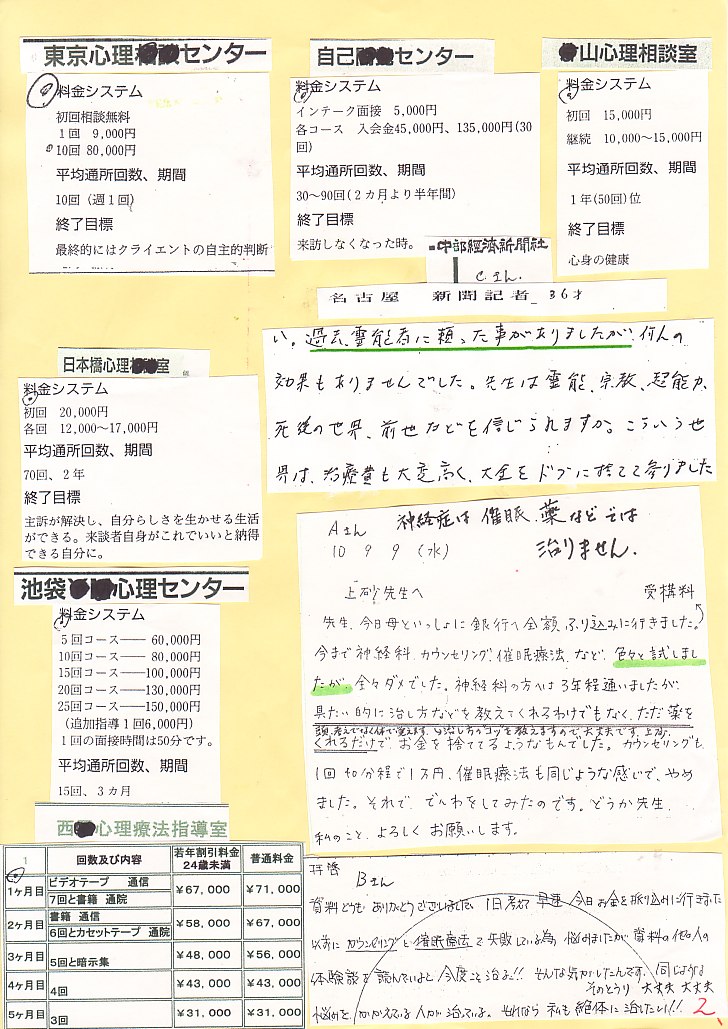 東京心理センター
料金システム
初回相談無料
1回 9,000円
10回 80,000円
平均通所回数、期間
10回(週1回)
終了目標
最終的にはクライエントの自主的判断
自己センター
料金システム
インテーク面接 5,000円
各コース 入会金45,000円、135,000円(30
回)
平均通所回数、期間
30〜90回(2カ月より半年間)
終了目標
来訪しなくなった時。
山心理相談室
料金システム
初回 15,000円
継続 10,000〜15,000円
平均通所回数、期間
1年(50回)位
終了目標
心身の健康
中部経済新聞社
Cさん.
名古屋 新聞記者 36才
い。過去、霊能者に頼った事がありましたが、何んの
効果もありませんでした。先生は霊能、宗教、超能力、
死後の世界、前世などを信じられますか。こういう世
界は、治療費も大変高く、大金をドブに捨てて参りました
日本橋心理室
料金システム
初回 20,000円
各回 12,000〜17,000円
平均通所回数、期間
70回、2年
終了目標
主訴が解決し、自分らしさを生かせる生活
ができる。来談者自身がこれでいいと納得
できる自分に。
池袋心理センター
料金システム
5回コース―― 60,000円
10回コース―― 80,000円
15回コース――100,000円
20回コース――130,000円
25回コース――150,000円
(追加指導1回6,000円)
1回の面接時間は50分です。
平均通所回数、期間
15回、3カ月
Aさん 神経症は催眠、薬などでは
10 9 9 (水) 治りません.
上砂先生へ 受構料
先生、今日母といっしょに銀行へ全額ふり込みに行きました。
今まで神経科、カウンセリング、催眠療法、など、色々と試しまし
たが、全々ダメでした。神経科の方へは3年程通いましたが、
具たい的に治し方などを教えてくれるわけでもなく、ただ薬を
くれるだけで、お金を捨ててるようなもんでした。カウンセリングも
1回40分程で1万円、催眠療法も同じような感じで、やめ
ました。それで、でんわをしてみたのです。どうか先生、
私のこと、よろしくお願いします。
西心理療法指導室
1 回数及び内容 若年割引料金 24歳未満 普通料金
1ヶ月目 ビデオテープ 通信 7回と書籍 通院 ¥67,000 ¥71,000
2ヶ月目 書籍 通信 6回とカセットテープ 通院 ¥58,000 ¥67,000
3ヶ月目 5回と暗示集 ¥48,000 ¥56,000
4ヶ月目 4回 ¥43,000 ¥43,000
5ヶ月目 3回 ¥31,000 ¥31,000
拝啓 Bさん
資料どうもありがとうございました、1日考えて早速今日お金を振り込みに行きました
以前にカウンセリングと催眠療法で失敗している為、悩みましたが資料の他の人の
体験談を読んでいると今度こそ治る!!そんな気がしたんです。同じような
そのとうり 大丈夫 大丈夫
悩みをかかえている人が治っている。それなら私も絶体に治したい!! 2